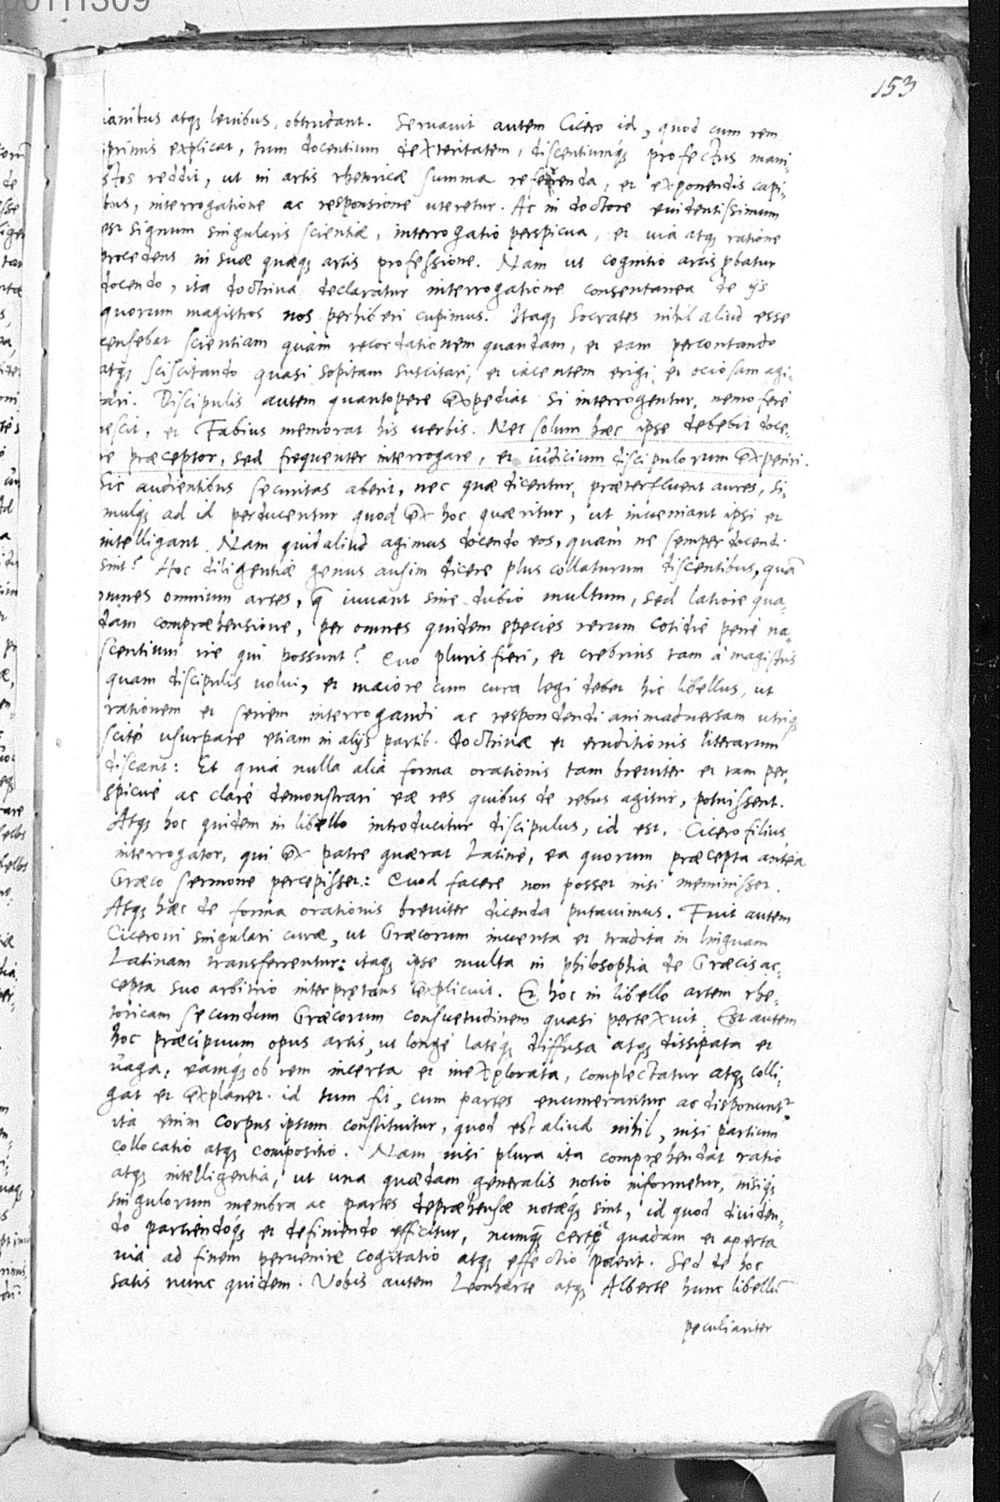 153
ianibus atq; leuibus, obtrudant. Seruauit autem Cicero id, quod cum rem
primus explicat, tum docentium dexteritatem, discentiumq; profectus mani„
stos reddit, ut in artis rhetoricæ summa referenda, et exponendis capi„
bus, interrogatione ac responsione uteretur. Ac in doctore euidentissimum
est signum singularis scientiæ, interrogatio perspicua, et uia atq; ratione
procedens in suæ quæq; artis professione. Nam ut cognitio artis pbatur
docendo, ita doctrina declaratur interrogatione consentanea de ijs
quorum magistros nos perhiberi cupimus. Itaq; Socrates nihil aliud esse
censebat scientiam quàm recordationem quandam, et eam percontando
atq; sciscitando quasi sopitam suscitari, et iacentem erigi, et ociosam agi„
tari. Discipulis autem quantopere expediat si interrogentur, nemo ferè
nescit, et Fabius memorat his uerbis. Nec solum hæc ipse debebit doce„
re præceptor, sed frequenter interrogare, et iudicium discipulorum experiri.
Sic audientibus securitas aberit, nec quæ dicentur, præterfluent aures, si„
mulq; ad id perducentur quod ex hoc quæritur, ut inueniant ipsi et
intelligant. Nam quid aliud agimus docendo eos, quàm ne semper docendi
sint? Hoc diligentiæ genus ausim dicere plus collaturum discentibus, quā
omnes omnium artes, q̄ iuuant sine dubio multum, sed latiore qua„
dam compræhensione, per omnes quidem species rerum cotidie penè na„
scentium ire qui possunt? Quo pluris fieri, et crebrius tam à magistris
quam discipulis uolui, et maiore cum cura legi debet hic libellus, ut
rationem et seriem interrogandi ac respondendi animaduersam utriq;
scitè usurpare etiam in alijs partib. doctrinæ et eruditionis literarum
discant: Et quia nulla alia forma orationis tam breuiter et tam per„
spicuè ac clarè demonstrari eæ res quibus de rebus agitur, potuissent.
Atq; hoc quidem in libello introducitur discipulus, id est, Cicero filius,
interrogator, qui ex patre quærat Latinè, ea quorum præcepta antea
Græco sermone percepisset: Quod facere non posset nisi meminisset.
Atq; hæc de forma orationis breuiter dicenda putauimus. Fuit autem
Ciceroni singulari curæ, ut Græcorum inuenta et tradita in linguam
Latinam transferrentur: itaq; ipse multa in philosophia de Græcis ac„
cepta suo arbitrio interpretans explicuit. Et hoc in libello artem rhe„
toricam secundum Græcorum consuetudinem quasi pertexuit. Est autem
hoc præcipuum opus artis, ut longè lateq; diffusa atq; dissipata et
uaga, eamq; ob rem incerta et inexplorata, complectatur atq; colli„
gat et explanet. id tum fit, cum partes enumerantur ac disponunt²
ita enim corpus ipsum constituitur, quod est aliud nihil, nisi partium
collocatio atq; compositio. Nam nisi plura ita comprehendat ratio
atq; intelligentia, ut una quædam generalis notio informetur, nisiq;
singulorum membra ac partes depræhensæ notæq; sint, id quod diuiden„
do partiendoq; et definiendo efficitur, numq̄ certa quadam et aperta
uia ad finem peruenire cogitatio atq; effectio poterit. Sed de hoc
satis nunc quidem. Vobis autem Leonharte atq; Alberte hunc libellū
peculiariter